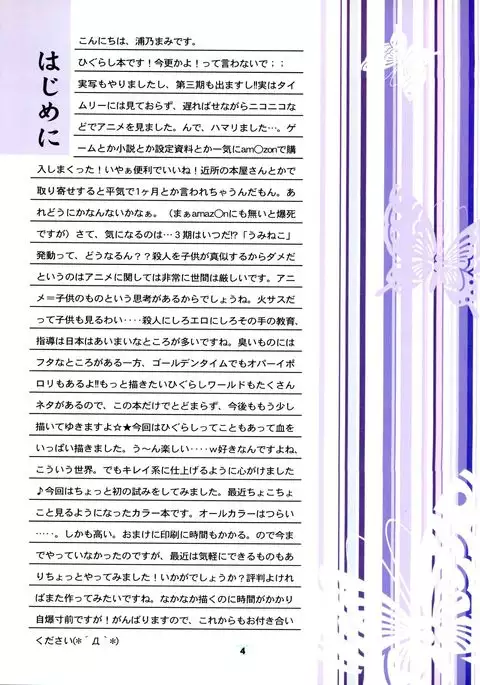 はじめに
こんにちは、浦乃まみです。
ひぐらし本です!今更かよ!って言わないで;;
実写もやりましたし、第三期も出ますし!!実はタイ
ムリーには見ておらず、遅ればせながらニコニコな
どでアニメを見ました。んで、ハマリました…。ゲ
ームとか小説とか設定資料とか一気にam○zonで購
入しまくった!いやぁ便利でいいね!近所の本屋さんとかで
取り寄せすると平気で1ヶ月とか言われちゃうんだもん。あ
れどうにかなんないかなぁ。(まぁamaz○nにも無いと爆死
ですが)さて、気になるのは…3期はいつだ!?「うみねこ」
発動って、どうなるん??殺人を子供が真似するからダメだ
というのはアニメに関しては非常に世間は厳しいです。アニ
メ=子供のものという思考があるからでしょうね。火サスだ
って子供も見るわい‥‥殺人にしろエロにしろその手の教育、
指導は日本はあいまいなところが多いですね。臭いものには
フタなところがある一方、ゴールデンタイムでもオパーイポ
ロリもあるよ!!もっと描きたいひぐらしワールドもたくさん
ネタがあるので、この本だけでとどまらず、今後ももう少し
描いてゆきますよ☆★今回はひぐらしってこともあって血を
いっぱい描きました。う〜ん楽しい‥‥w好きなんですよね、
こういう世界。でもキレイ系に仕上げるように心がけました
♪今回はちょっと初の試みをしてみました。最近ちょこちょ
こと見るようになったカラー本です。オールカラーはつらい
‥‥。しかも高い。おまけに印刷に時間もかかる。ので今ま
でやっていなかったのですが、最近は気軽にできるものもあ
りちょっとやってみました!いかがでしょうか?評判よけれ
ばまた作ってみたいですね。なかなか描くのに時間がかかり
自爆寸前ですが!がんばりますので、これからもお付き合い
ください(*´Д`*)
4